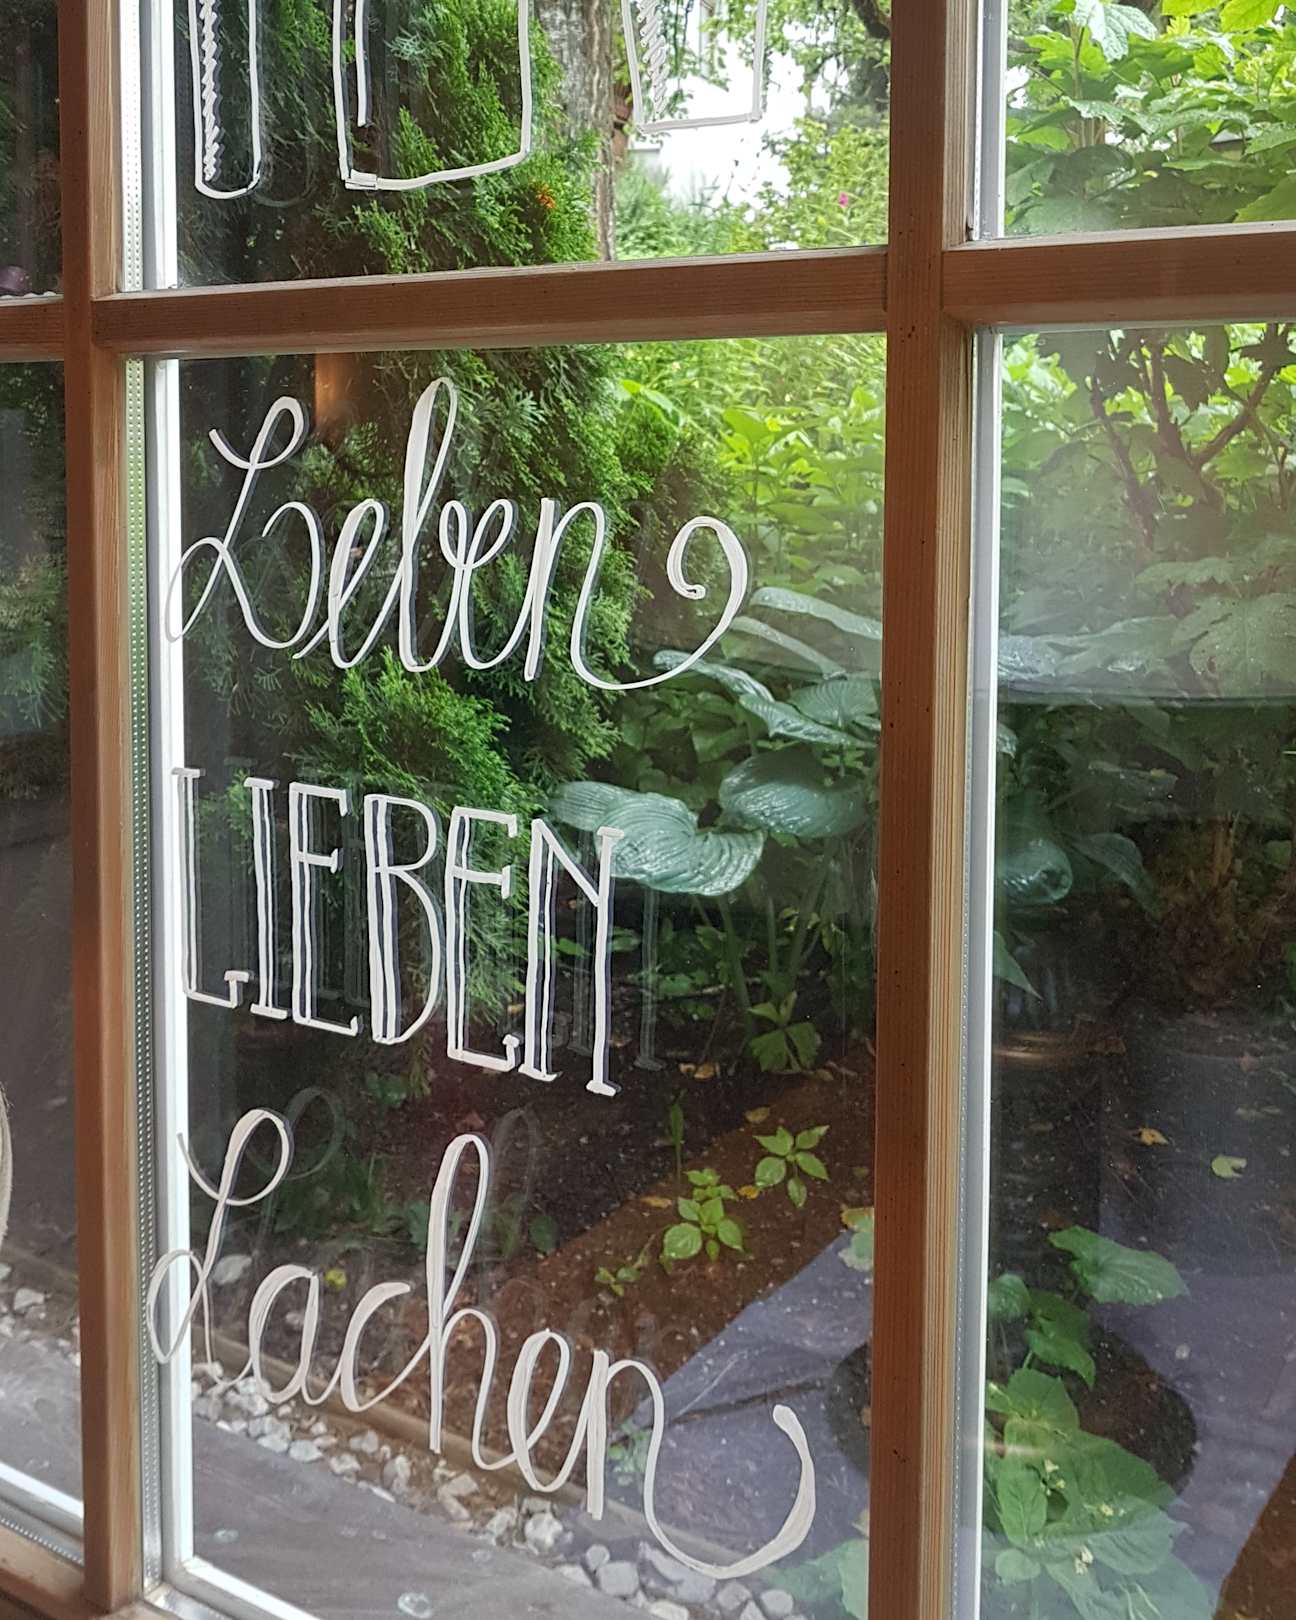 Leben
LIEBEN
Lachen